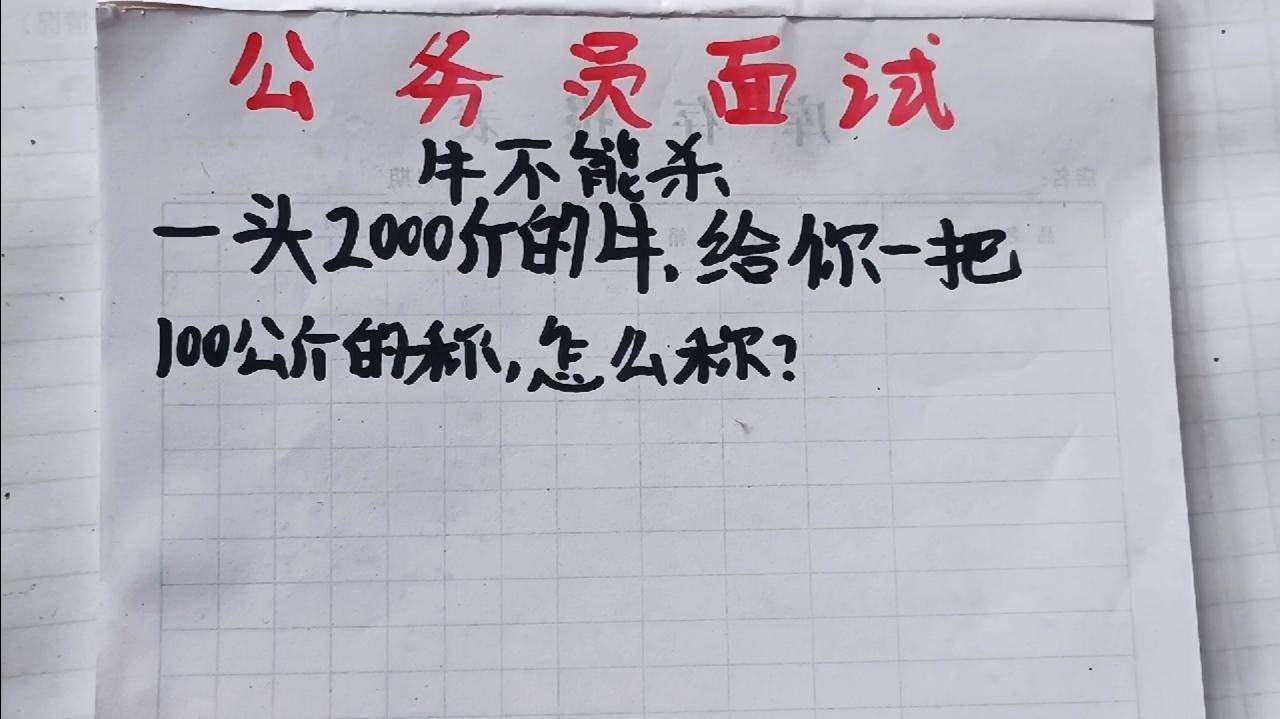 公务员面试
牛不能杀
一头2000斤的牛,给你一把
100公斤的称,怎么称?